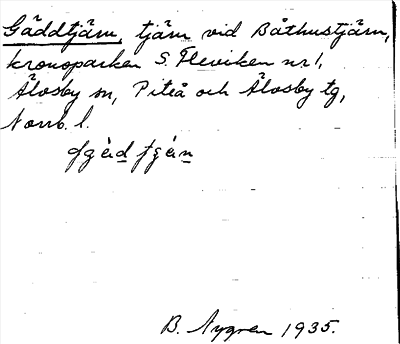 Gäddtjärn, tjärn vid Båthustjärn,
kronoparken S. Fleviken nr 1,
Älvsby sn, Piteå och Älvsby tg,
Norrb. l.
B. Nygren 1935.